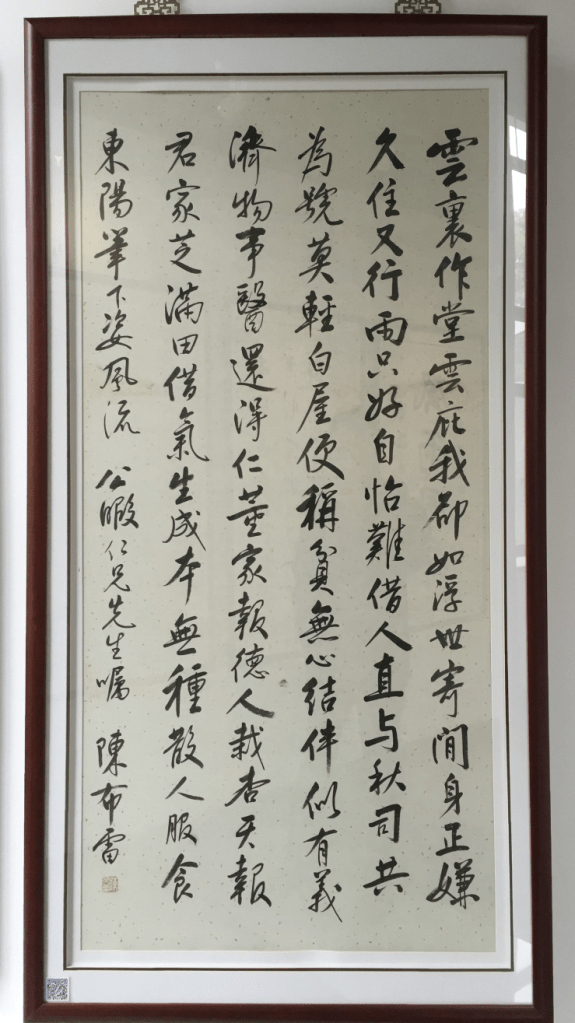 雲裏作堂雲庇我却如浮世寄閒身正嫌
久住又行雨只好自怡難借人直与秋司共
為號莫輕白屋便稱貧無心結伴似有義
濟物半醫還得仁董家報德人栽杏天報
君家芝滿田借氣生成本無種散人服食
東陽筆下姿風流 公暇仁兄先生嘱 陳布雷